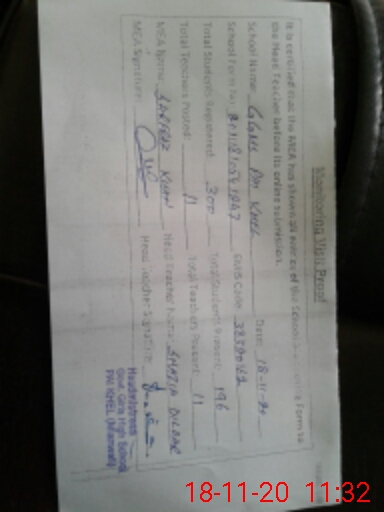 Monitoring Visit Proof
It is certified that the MEA has shown all entries of the School Monitoring Form to
the Head Teacher before its online submission.
School Name: GGHS PAI KHEL Date: 18-11-20
School Form No: EMIS Code:
Total Students Registered: 300 Total Students Present: 196
Total Teachers Posted: 11 Total Teachers Present: 11
MEA Name: SARFRAZ KHAN Head Teacher Name: SHAZIA DILBAR
MEA Signature: Head Teacher Signature:
Headmistress
Govt. Girls High School
PAI KHEL (Mianwali)
18-11-20 11:32